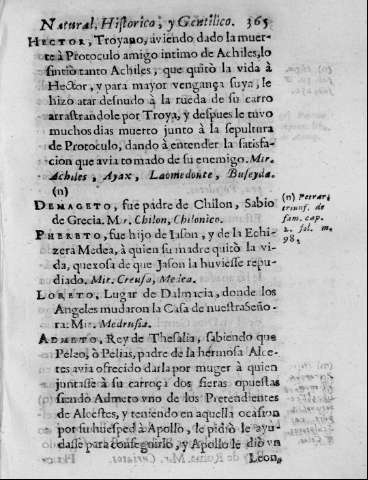 Natural, Historico, y Gentilico. 365
HECTOR, Troyano, aviendo dado la muer-
te à Protoculo amigo intimo de Achiles, lo
sintiò tanto Achiles, que quitò la vida à
Hector, y para mayor vengança suya, le
hizo atar desnudo à la rueda de su carro
arrastrandole por Troya, y despues le tuvo
muchos dias muerto junto à la sepultura
de Protoculo, dando à entender la satisfa-
cion que avia tomado de su enemigo. Mir.
Achiles, Ayax, Laomedonte, Buseyda.
(n)
DEMAGETO, fue padre de Chilon, Sabio
de Grecia. Mir. Chilon, Chilonico.
PHERETO, fue hijo de Iason, y de la Echi-
zera Medea, à quien su madre quitò la vi-
da, quexosa de que Iason la huviesse repu-
diado. Mir. Creusa, Medea.
LORETO, Lugar de Dalmacia, donde los
Angeles mudaron la Casa de nuestra Seño-
ra. Mir. Medrusia.
ADMETO, Rey de Thesalia, sabiendo que
Peleo, ò Pelias, padre de la hermosa Alce-
tes avia ofrecido darla por muger à quien
juntasse à su carroça dos fieras opuestas
siendo Admeto vno de los Pretendientes
de Alcestes, y teniendo en aquella ocasion
por su huesped à Apollo, le pidiò le ayu-
dasse para conseguirlo, y Apollo le diò vn
Leon,
(n) Petrar.
triunf. de
fam. cap.
2. fol. m.
98.